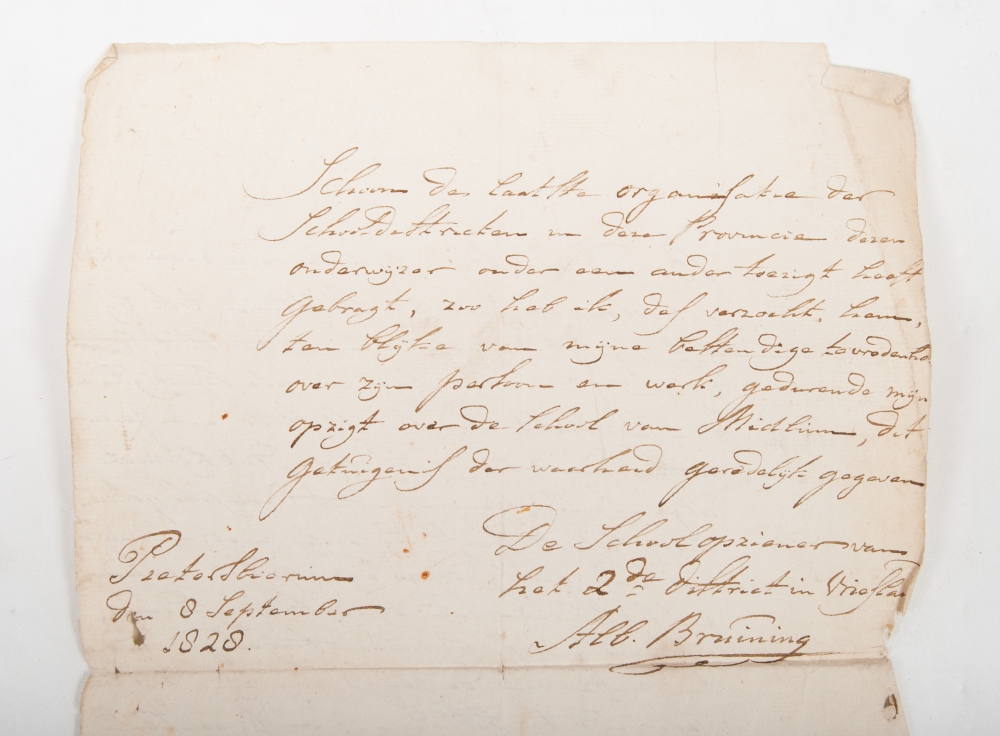 Schoon de laatste organisatie der
Schooldistrecten in deze Provincie dezen
onderwijzer onder een ander toezigt heeft
gebragt, zoo heb ik, des verzocht, hem,
ten blijke van mijne bestendige tevredenhe
over zijn persoon en werk, gedurende mijn
opzigt over de School van Midlum, dit
getuigenis der waarheid geredelijk gegeven
De Schoolopziener van
het 2de district in Vriesla
Alb. Bruining
Pietersbierum
den 8 September
1828.